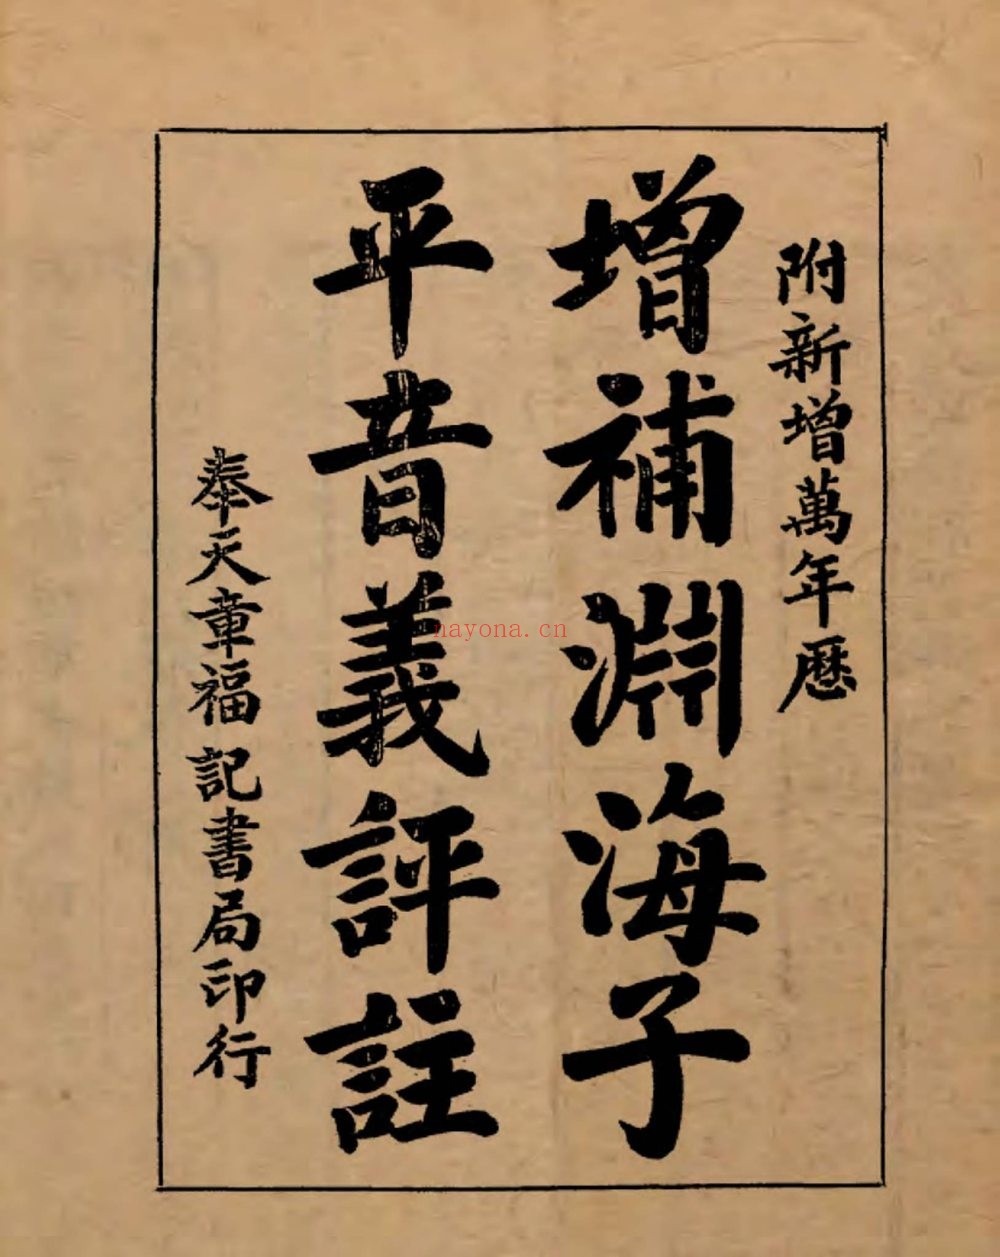 附新增萬年歷
增補淵海子
平音義評註
奉天章福記書局印行
nayona.cn